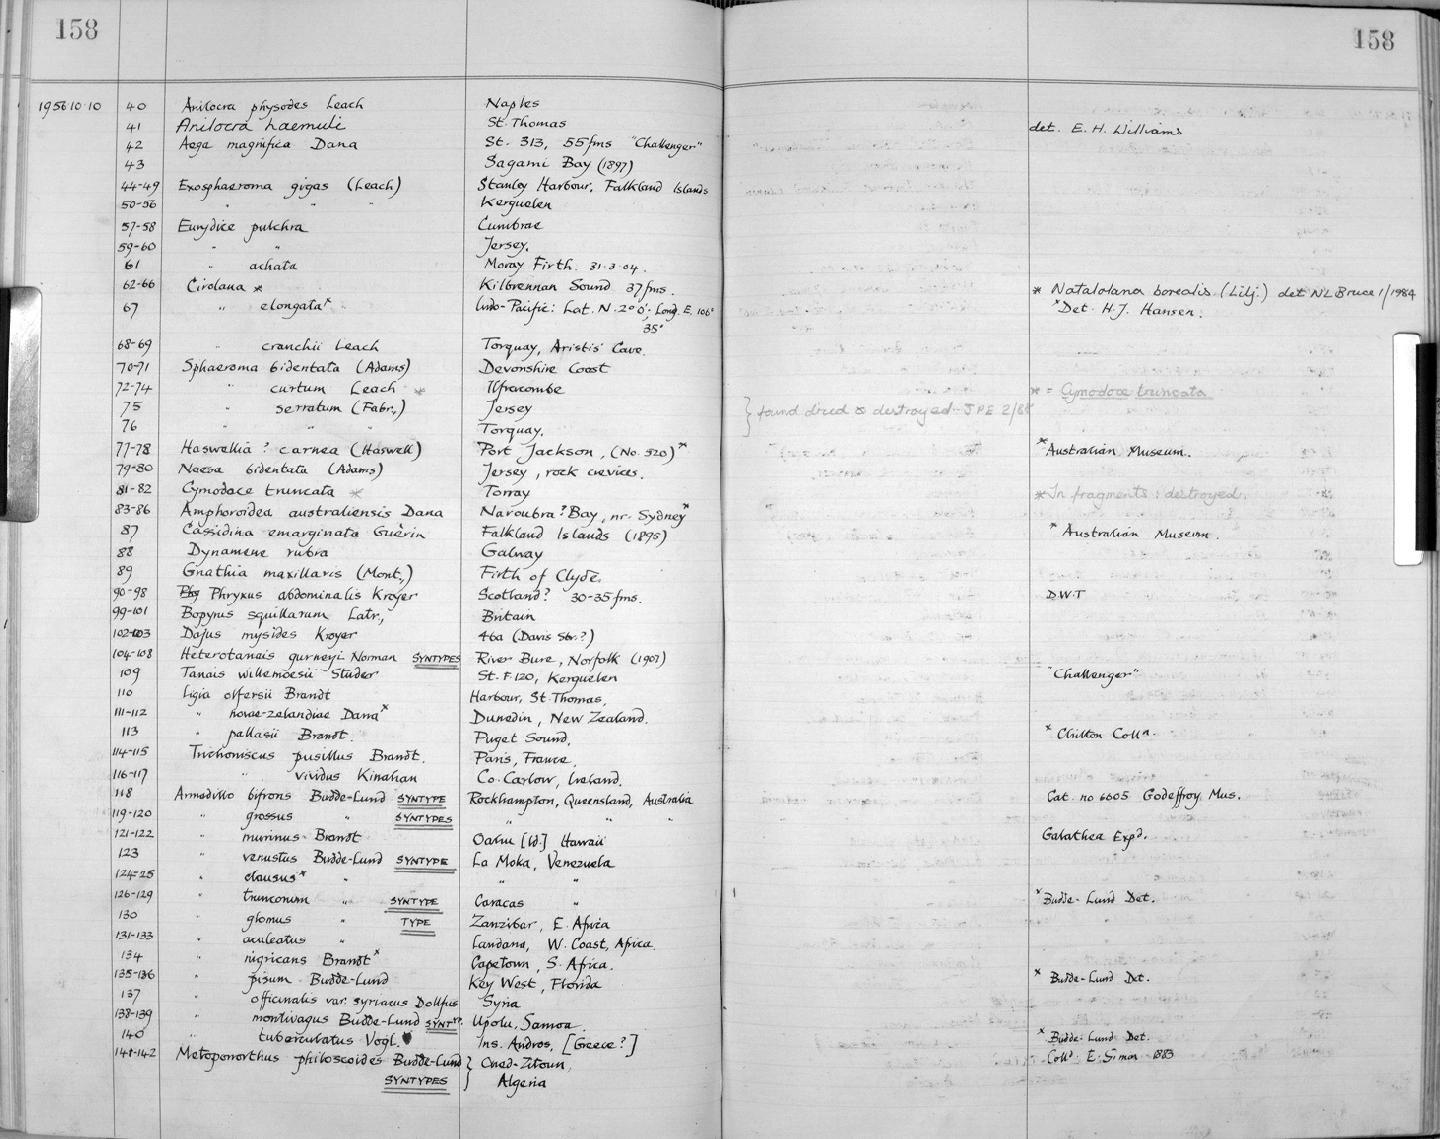 158 158
1956 10.10 40 Anilocra physodes Leach Naples
41 Anilocra haemuli St. Thomas det. E. H. Williams
42 Aega magnifica Dana St. 313, 55fms "Challenger"
43 Sagami Bay (1897)
44-49 Exosphaeroma gigas (Leach) Stanley Harbour, Falkland Islands
50-56 " " " Kerguelen
57-58 Eurydice pulchra Cumbrae
59-60 " " Jersey.
61 " achata Moray Firth. 31.3.04.
62-66 Cirolana * Kilbrennan Sound 37fms. * Natatolana borealis (Lilj.) det NL Bruce 1/1984
67 " elongata* " Indo-Pacific: Lat. N. 2° 0', Long. E. 106° *Det. H.J. Hansen.
35'
68-69 " cranchii Leach Torquay, Aristis' Cave.
70-71 Sphaeroma bidentata (Adams) Devonshire Coast
72-74 " curtum Leach * Ilfracombe * = Cymodoce truncata
75 " serratum (Fabr.,) Jersey } found dried & destroyed - JPE 2/88
76 " " " Torquay.
77-78 Haswellia ? carnea (Haswell) Port Jackson, (No. 520)* *Australian Museum.
79-80 Naesa bidentata (Adams) Jersey, rock crevices.
81-82 Cymodoce truncata * Torray *In fragments: destroyed.
83-86 Amphoroidea australiensis Dana Naroubra? Bay, nr. Sydney*
87 Cassidina emarginata Guérin Falkland Islands (1895) * Australian Museum.
88 Dynamene rubra Galway
89 Gnathia maxillaris (Mont.,) Firth of Clyde.
90-98 Phy Phryxus abdominalis Kroyer Scotland? 30-35fms. D.W.T
99-101 Bopyrus squillarum Latr., Britain
102-103 Dajus mysides Kroyer 46a (Davis Str.?)
104-108 Heterotanais gurneyi Norman SYNTYPES River Bure, Norfolk (1907)
109 Tanais willemoesii Studer St. F.120, Kerguelen "Challenger"
110 Ligia olfersii Brandt Harbour, St Thomas,
111-112 " novae-zelandiae Dana* Dunedin, New Zealand.
113 " pallasii Brandt. Puget Sound, * Chilton Colln.
114-115 Trichoniscus pusillus Brandt. Paris, France,
116-117 " vividus Kinahan Co. Carlow, Ireland.
118 Armadillo bifrons Budde-Lund SYNTYPE Rockhampton, Queensland, Australia Cat. no 6605 Godeffroy Mus.
119-120 " grossus " SYNTYPES " " "
121-122 " murinus Brandt Oahu [Id.] Hawaii Galathea Expd.
123 " venustus Budde-Lund SYNTYPE La Moka, Venezuela
124-25 " clausus* " " "
126-129 " truncorum " SYNTYPE Caracas " *Budde-Lund Det.
130 " glomus " TYPE Zanzibar, E. Africa
131-133 " aculeatus " Landana, W. Coast, Africa.
134 " nigricans Brandt* Capetown, S. Africa.
135-136 " pisum Budde-Lund Key West, Florida * Budde-Lund Det.
137 " officinalis var. syriacus Dollfus Syria
138-139 " montivagus Budde-Lund SYNTYP. Upolu, Samoa.
140 " tuberculatus Vogl. Ins. Andros, [Greece?] * Budde-Lund Det.
141-142 Metoponorthus philoscoides Budde-Lund } Oued-Zitoun, Colld. E. Simon 1883
SYNTYPES } Algeria